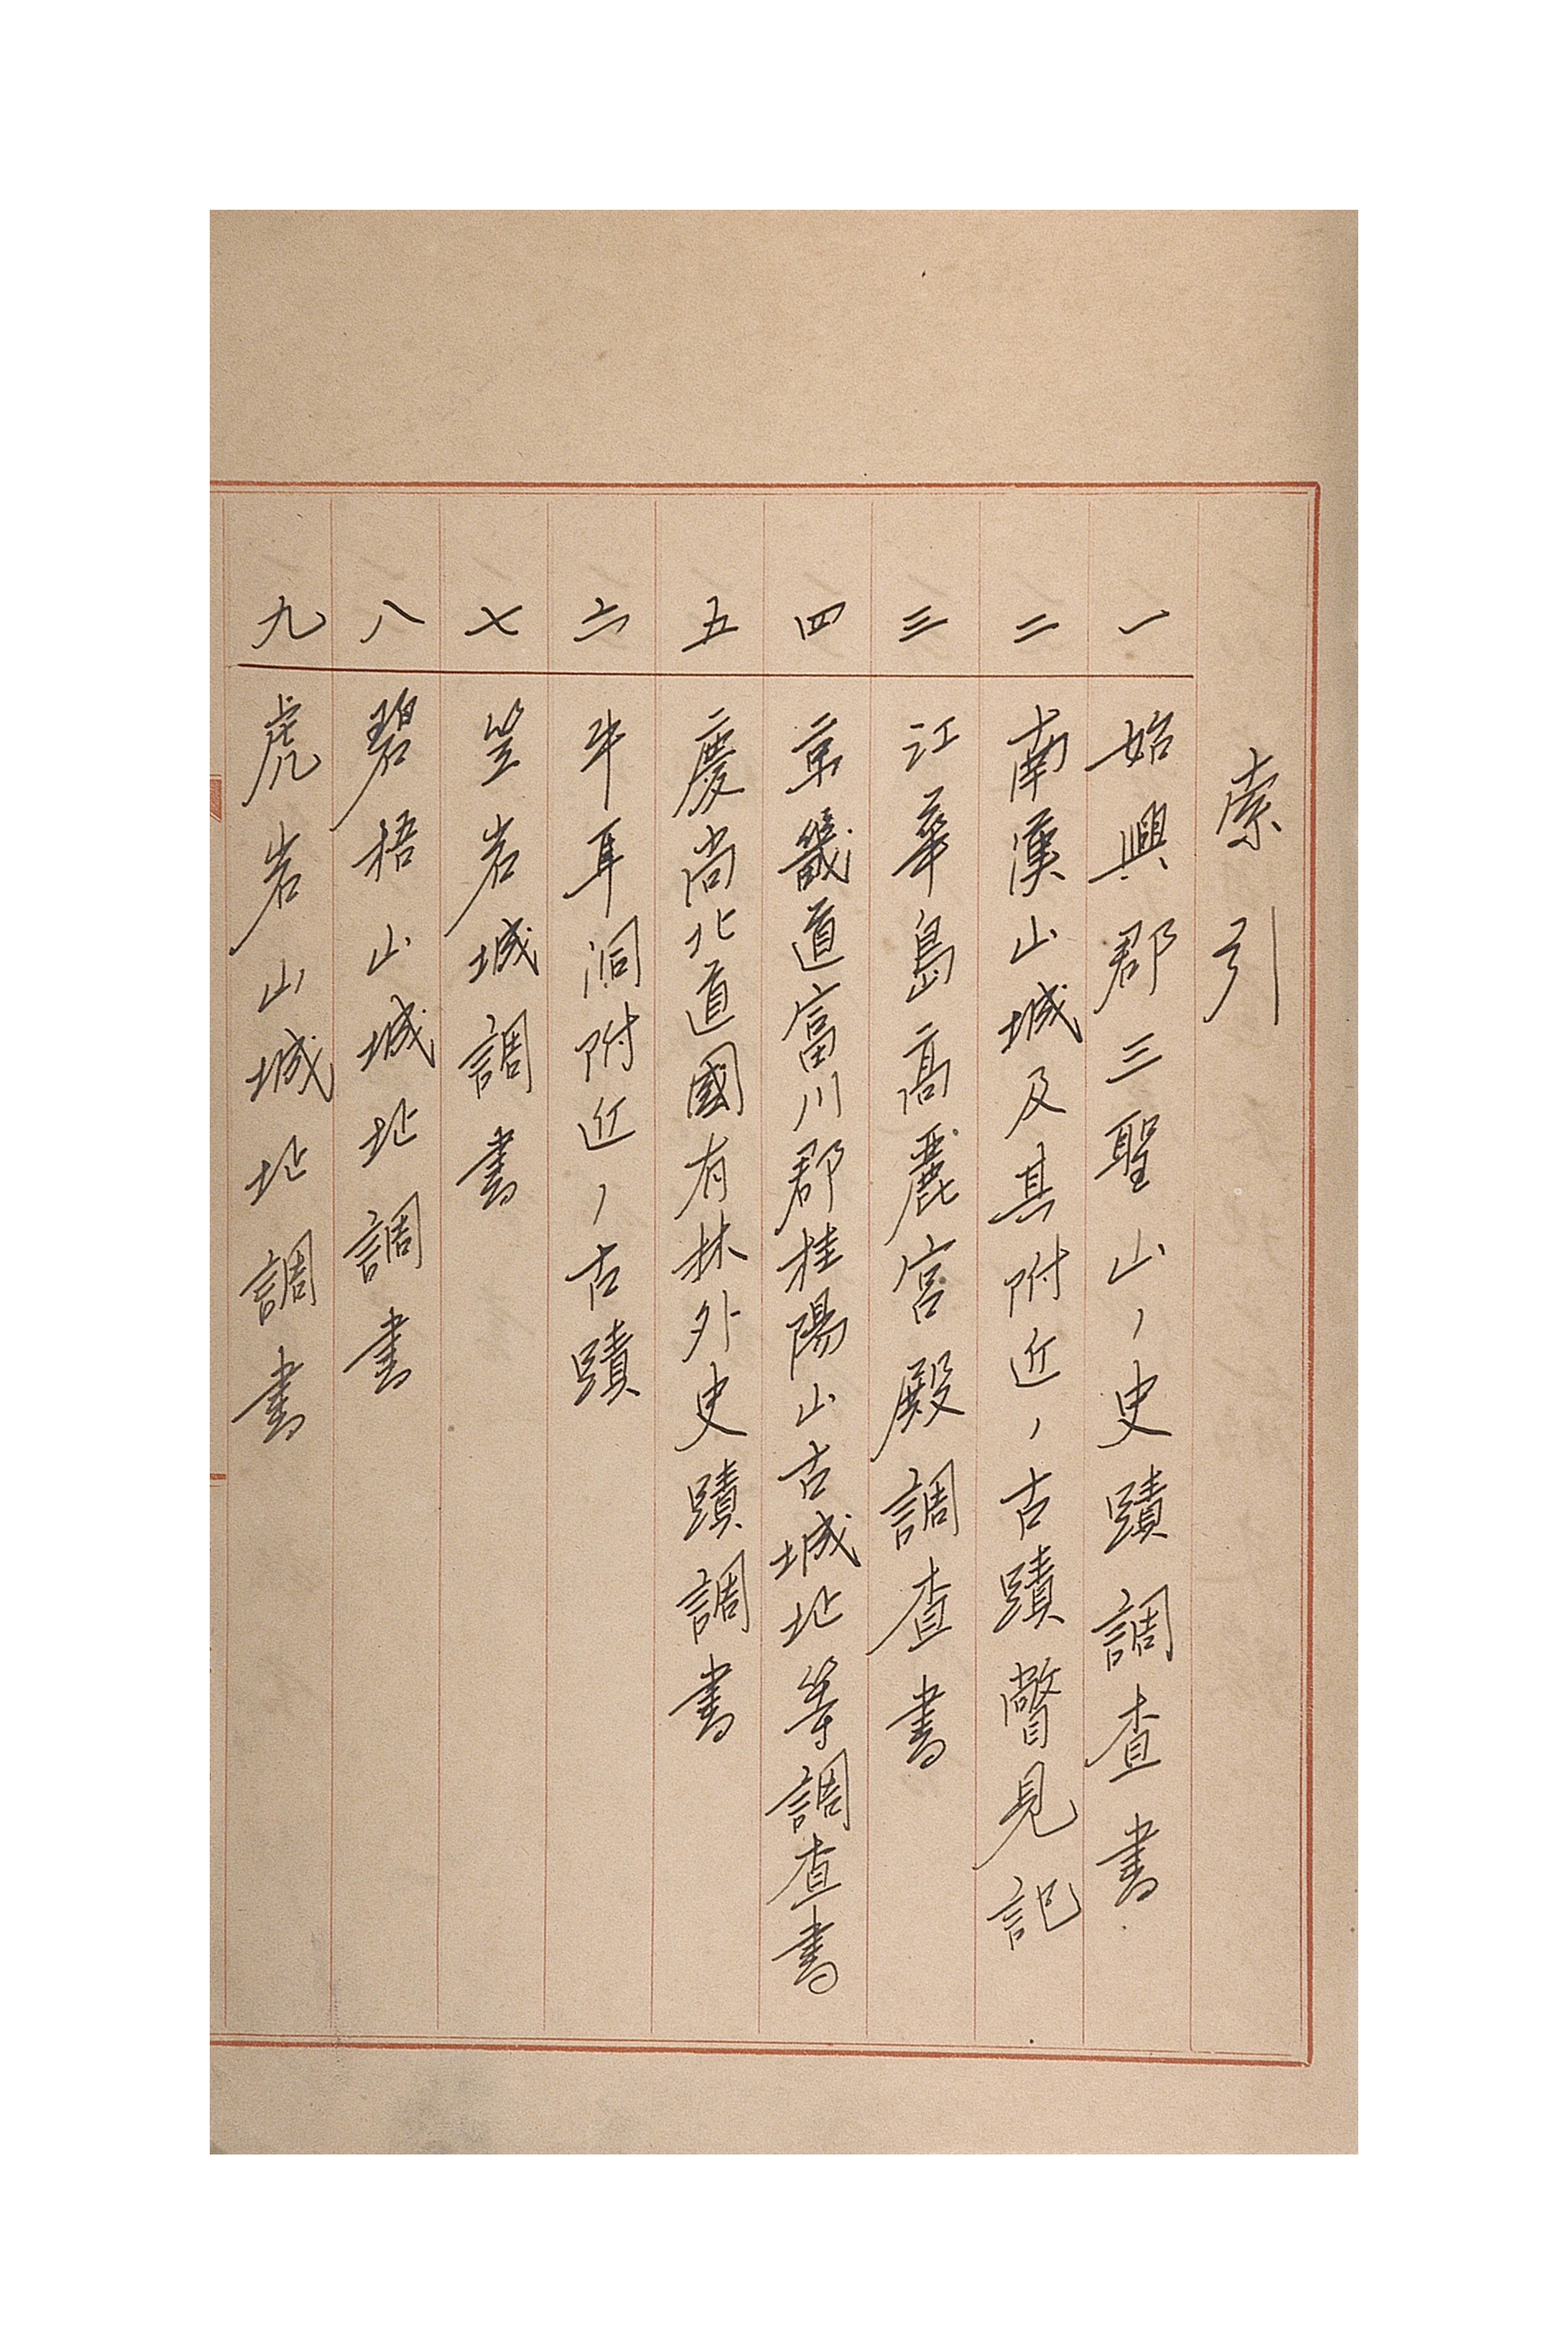 索引
一 始興郡三聖山ノ史蹟調査書
二 南漢山城及其附近ノ古蹟瞥見記
三 江華島高麗宮殿調査書
四 京畿道富川郡桂陽山古城址等調査書
五 慶尚北道國有林外史蹟調書
六 牛耳洞附近ノ古蹟
七 笠岩城調書
八 碧梧山城址調書
九 虎岩山城址調書